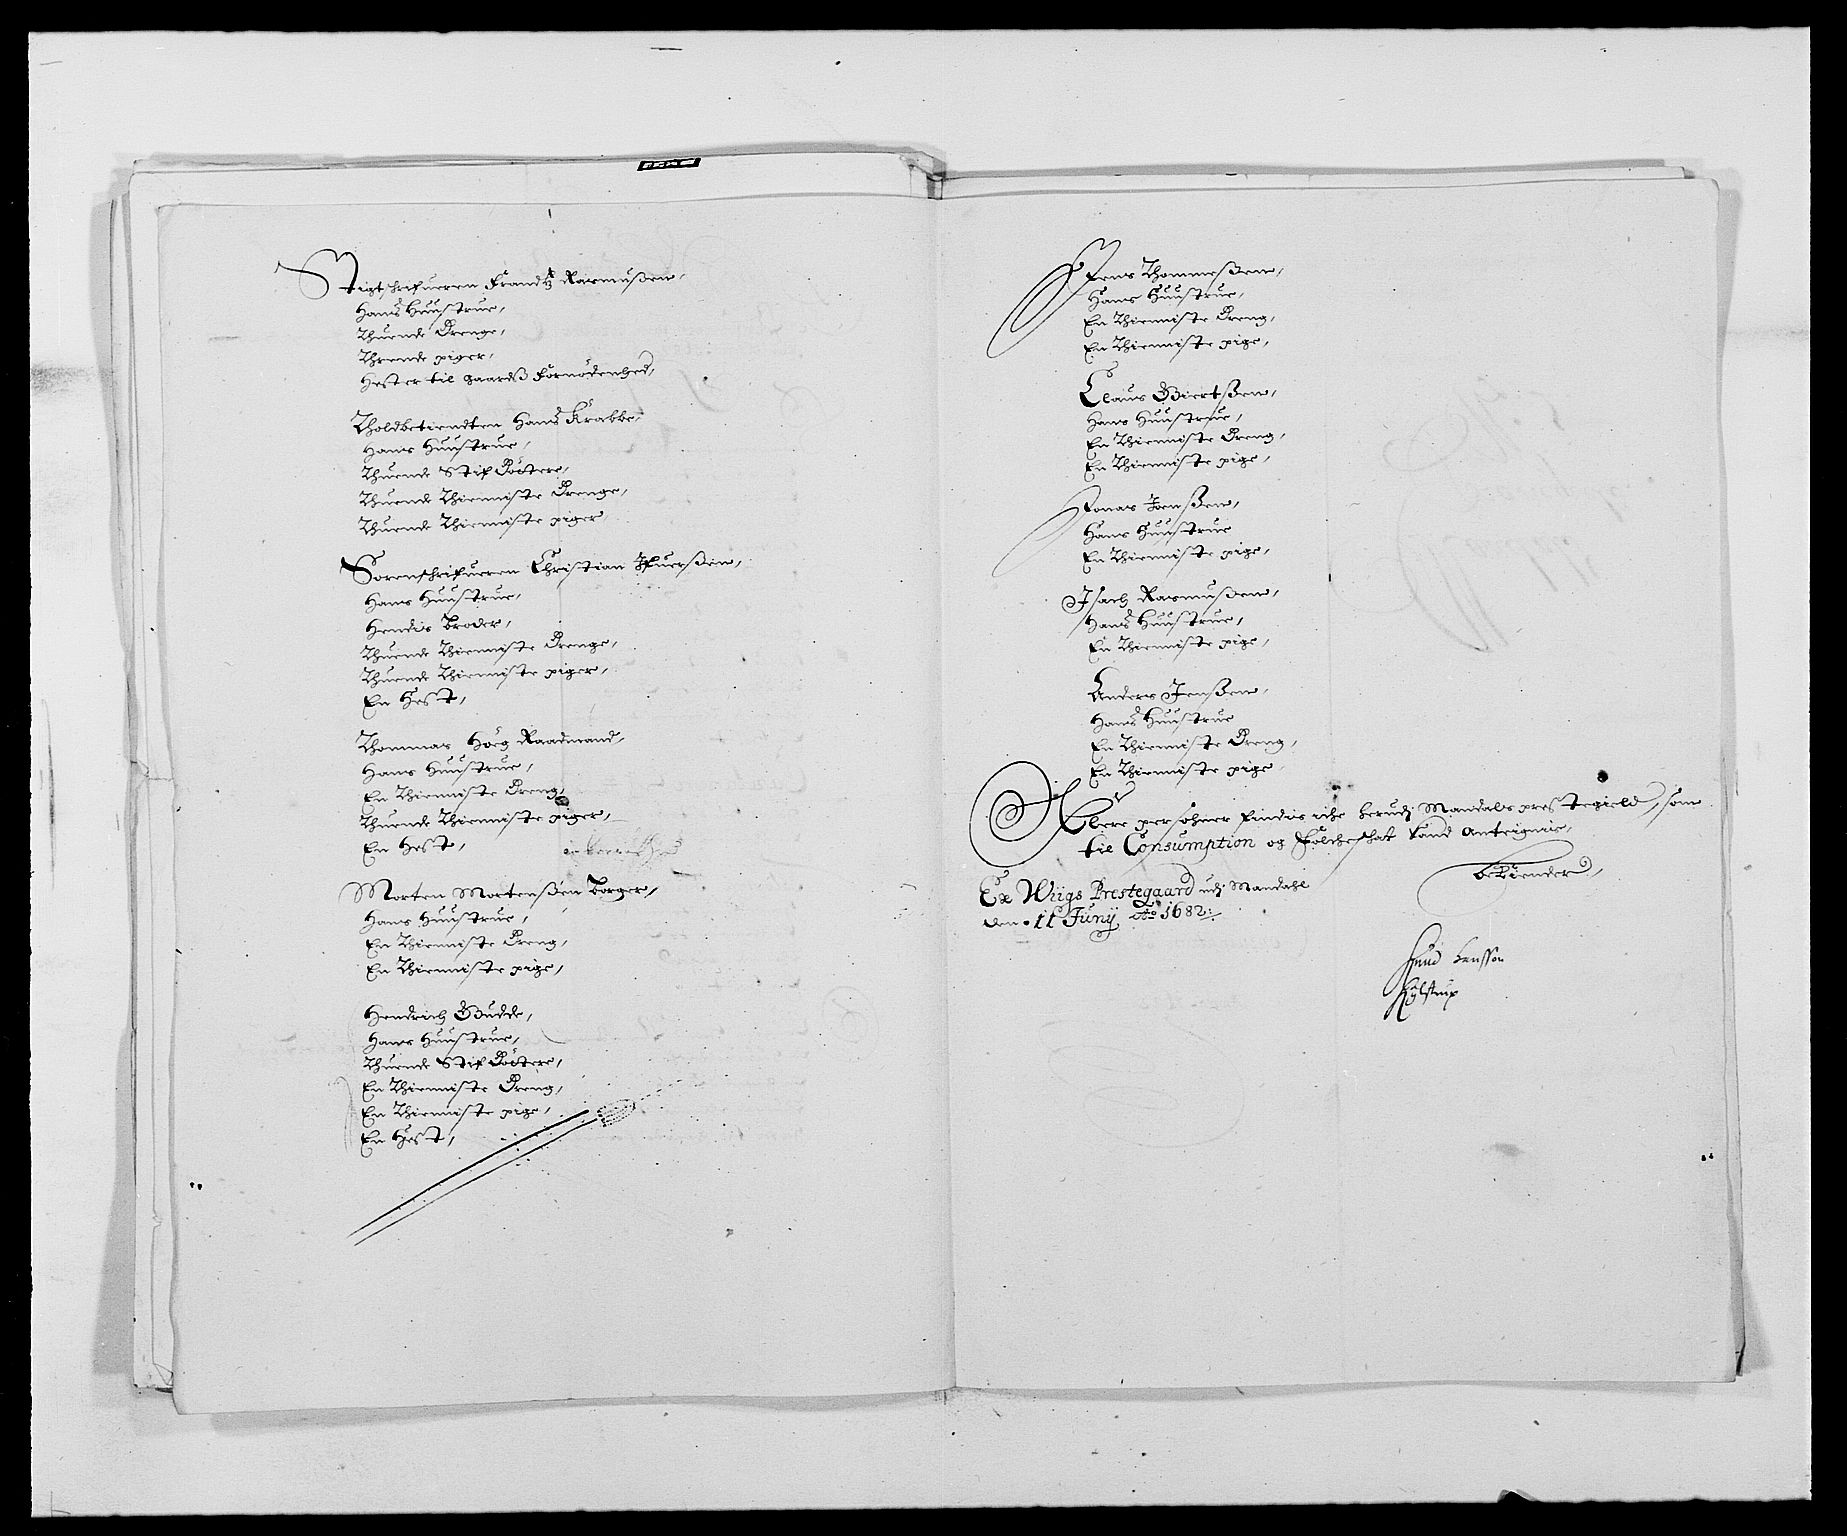 Stigtschrifueren Frandtz Rasmußen,
Hans Huustrue,
Thuende Drenge,
Thrende piger,
Hester til gaardß Fornødenhed,
Tholdbetiendten Hans Krabbe,
Hans Huustrue,
Thuende Stif Døttere,
Thuende Thienniste Drenge,
Thuende Thienniste piger,
Sorenschrifueren Christian Ifuerßen,
Hans Huustrue,
Hendis Broder,
Thuende Thienniste Drenge,
Thuende Thienniste piger,
En Hest,
Thommas Høeg Raadmand,
Hans Huustrue,
En Thienniste Dreng,
Thuende Thienniste piger,
En Hest,
Morten Mortenßen Borger,
Hans Huustrue,
En Thienniste Dreng,
En Thienniste pige,
Hendrich Budde,
Hans Huustrue,
Thuende Stif Døttere,
En Thienniste Dreng,
En Thienniste pige,
En Hest,
Jens Thommeßen,
Hans Huustrue,
En Thienniste Dreng,
En Thienniste pige,
Claus Giertßen,
Hans Huustrue,
En Thienniste Dreng,
En Thienniste pige,
Jonas Jenßen,
Hans Huustrue
En Thienniste pige,
Isach Rasmußen,
Hans Huustrue,
En Thienniste pige,
Anders Jenßen,
Hans Huustrue
En Thienniste Dreng,
En Thienniste pige
Flere persohner findis iche herudj Mandals prestegield, som
til Consumption og Folcheschat kand anteignis,
bekiender,
Ex Wiigs Prestegaard udj Mandahl
den 11 Junij Ao 1682:
Knud